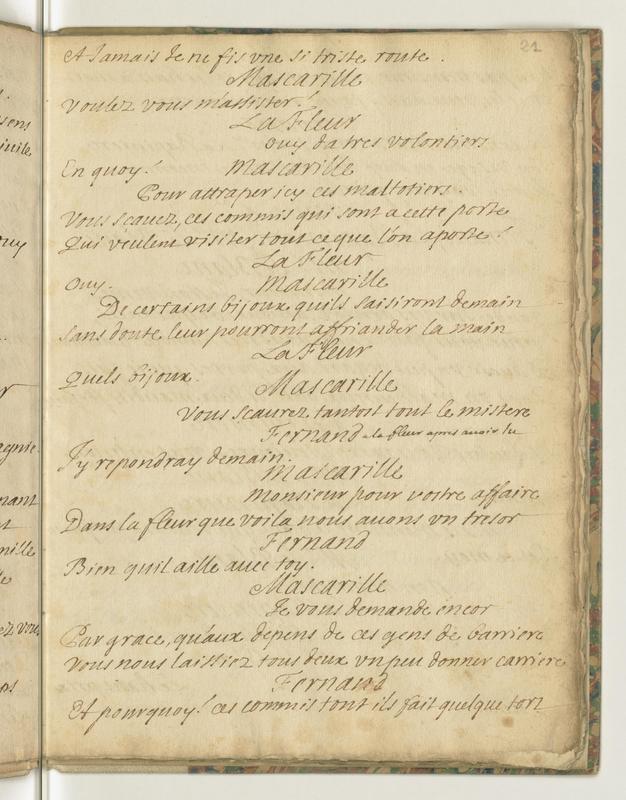 21
Et Jamais Je ne fis vne si triste route.
Mascarille
Voulez vous m'assister!
La Fleur
ouy da tres volontiers
En quoy!
Mascarille
Pour attraper icy ces maltotiers.
Vous scauez, ces commis qui sont a cette porte
Qui veulent visiter tout ce que l'on aporte!
La Fleur
ouy.
Mascarille
De certains bijoux quils saisiront demain
Sans doute leur pourront affriander la main
La Fleur
Quels bijoux.
Mascarille
Vous scaurez tantost tout le mistere
Fernand a la fleur apres auoir lu
J'y repondray demain.
Mascarille
Monsieur pour vostre affaire
Dans la fleur que voila nous auons vn tresor
Fernand
Bien quil aille auec toy.
Mascarille
Je vous demande encor
Par grace, qu'aux depens de ces gens de barriere
Vous nous laissiez tous deux vn peu donner carriere
Fernand
Et pourquoy! ces commis tont ils fait quelque tort
sens
ouy
agnie.
nant
nille
ez vous